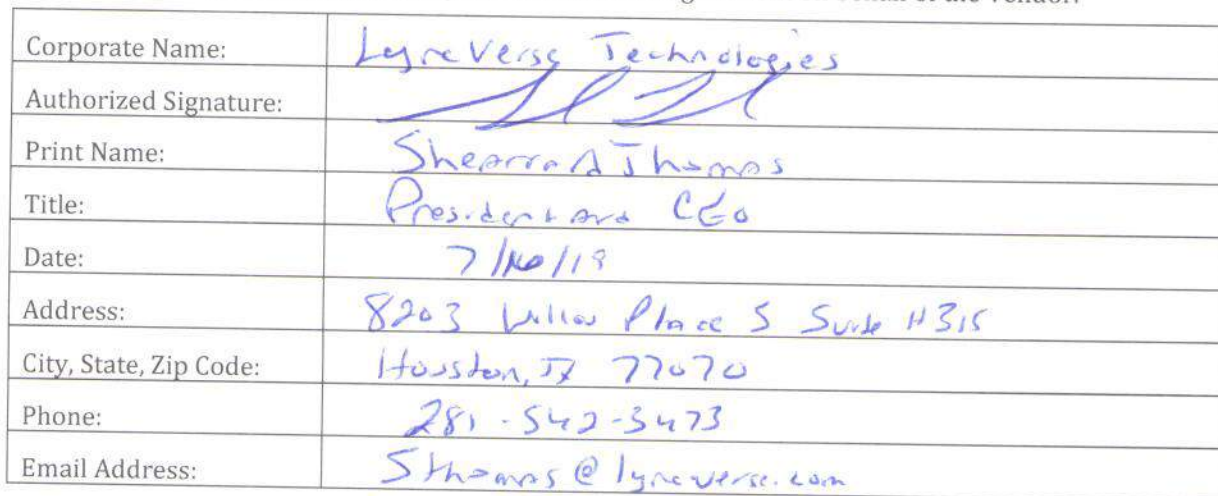 the Vendor.
Corporate Name: LyneVerse Technologies
Authorized Signature:
Print Name: Sherrard Thomas
Title: President and CEO
Date: 7/ /19
Address: 8203 Willow Place S Suite #315
City, State, Zip Code: Houston, TX 77070
Phone: 281-542-3473
Email Address: Sthomas@lyneverse.com